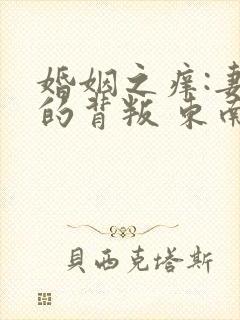 婚姻之痒:妻
的背叛 东南
貝西克塔斯